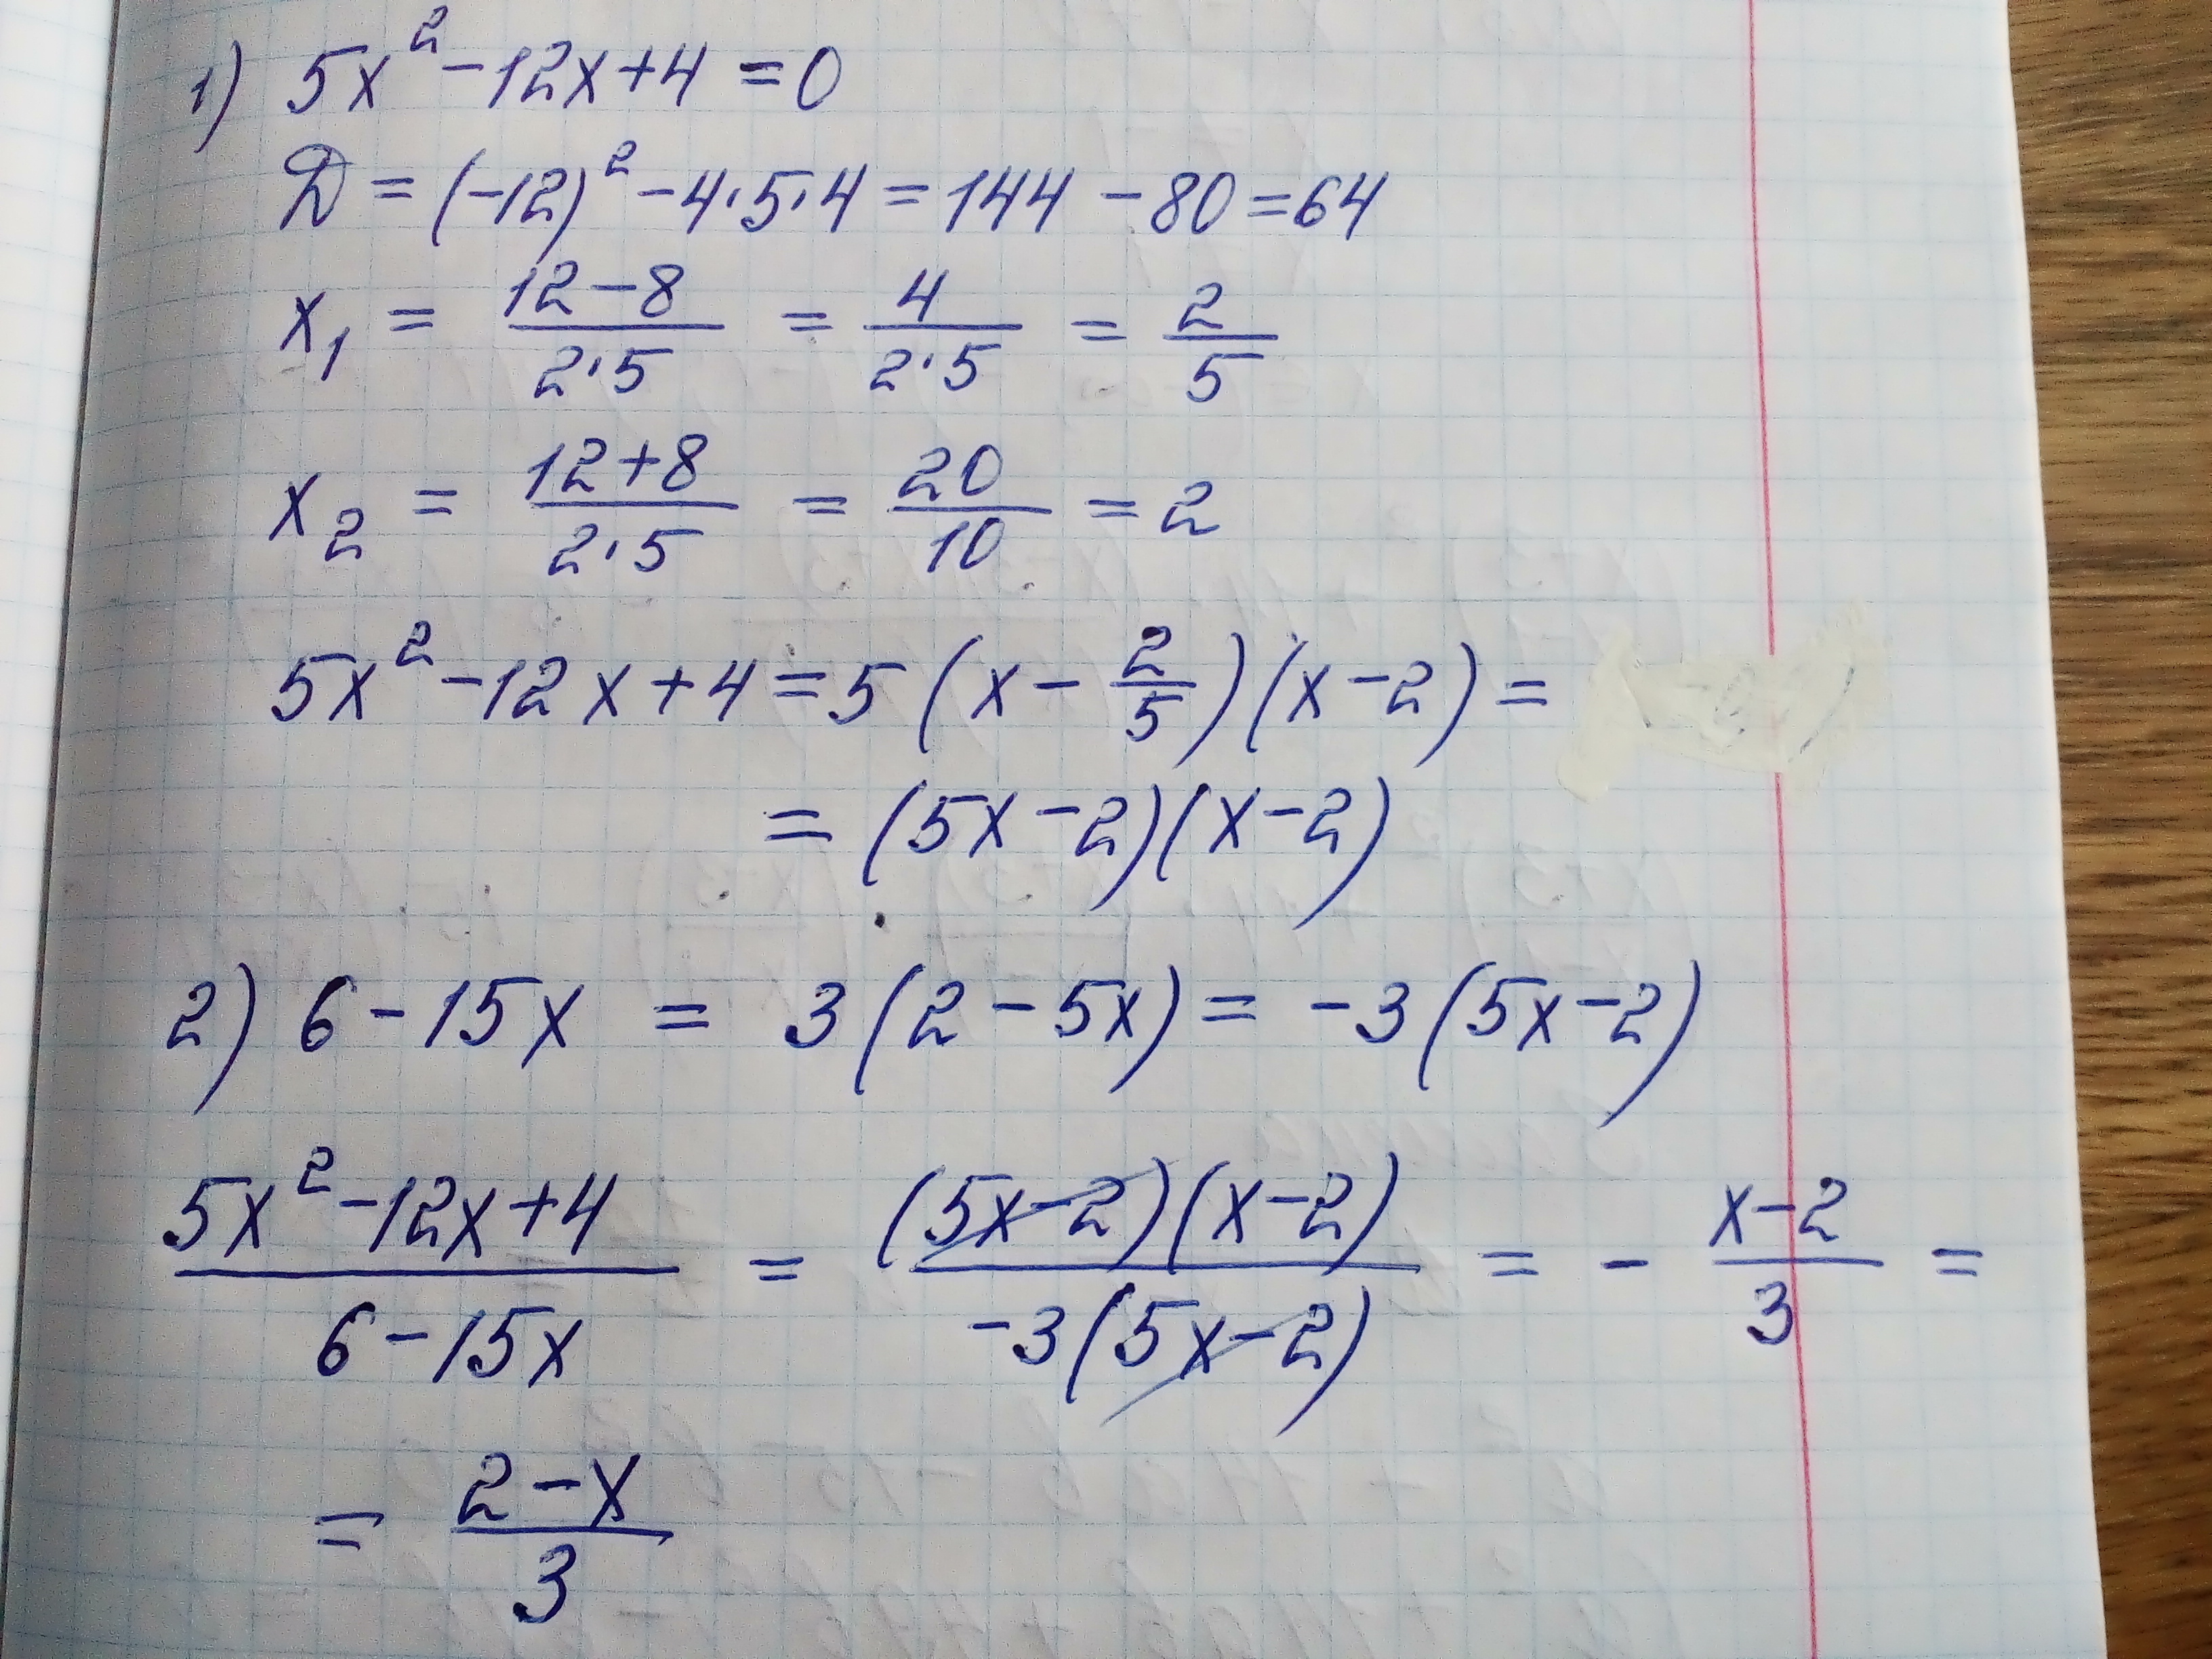 1) 5x² - 12x + 4 = 0
D = (-12)² - 4·5·4 = 144 - 80 = 64
x₁ = (12-8)/(2·5) = 4/(2·5) = 2/5
x₂ = (12+8)/(2·5) = 20/10 = 2
5x² - 12x + 4 = 5(x - 2/5)(x - 2) =
= (5x - 2)(x - 2)
2) 6 - 15x = 3(2 - 5x) = -3(5x - 2)
(5x² - 12x + 4)/(6 - 15x) = ((5x - 2)(x - 2))/(-3(5x - 2)) = - (x - 2)/3 =
= (2 - x)/3